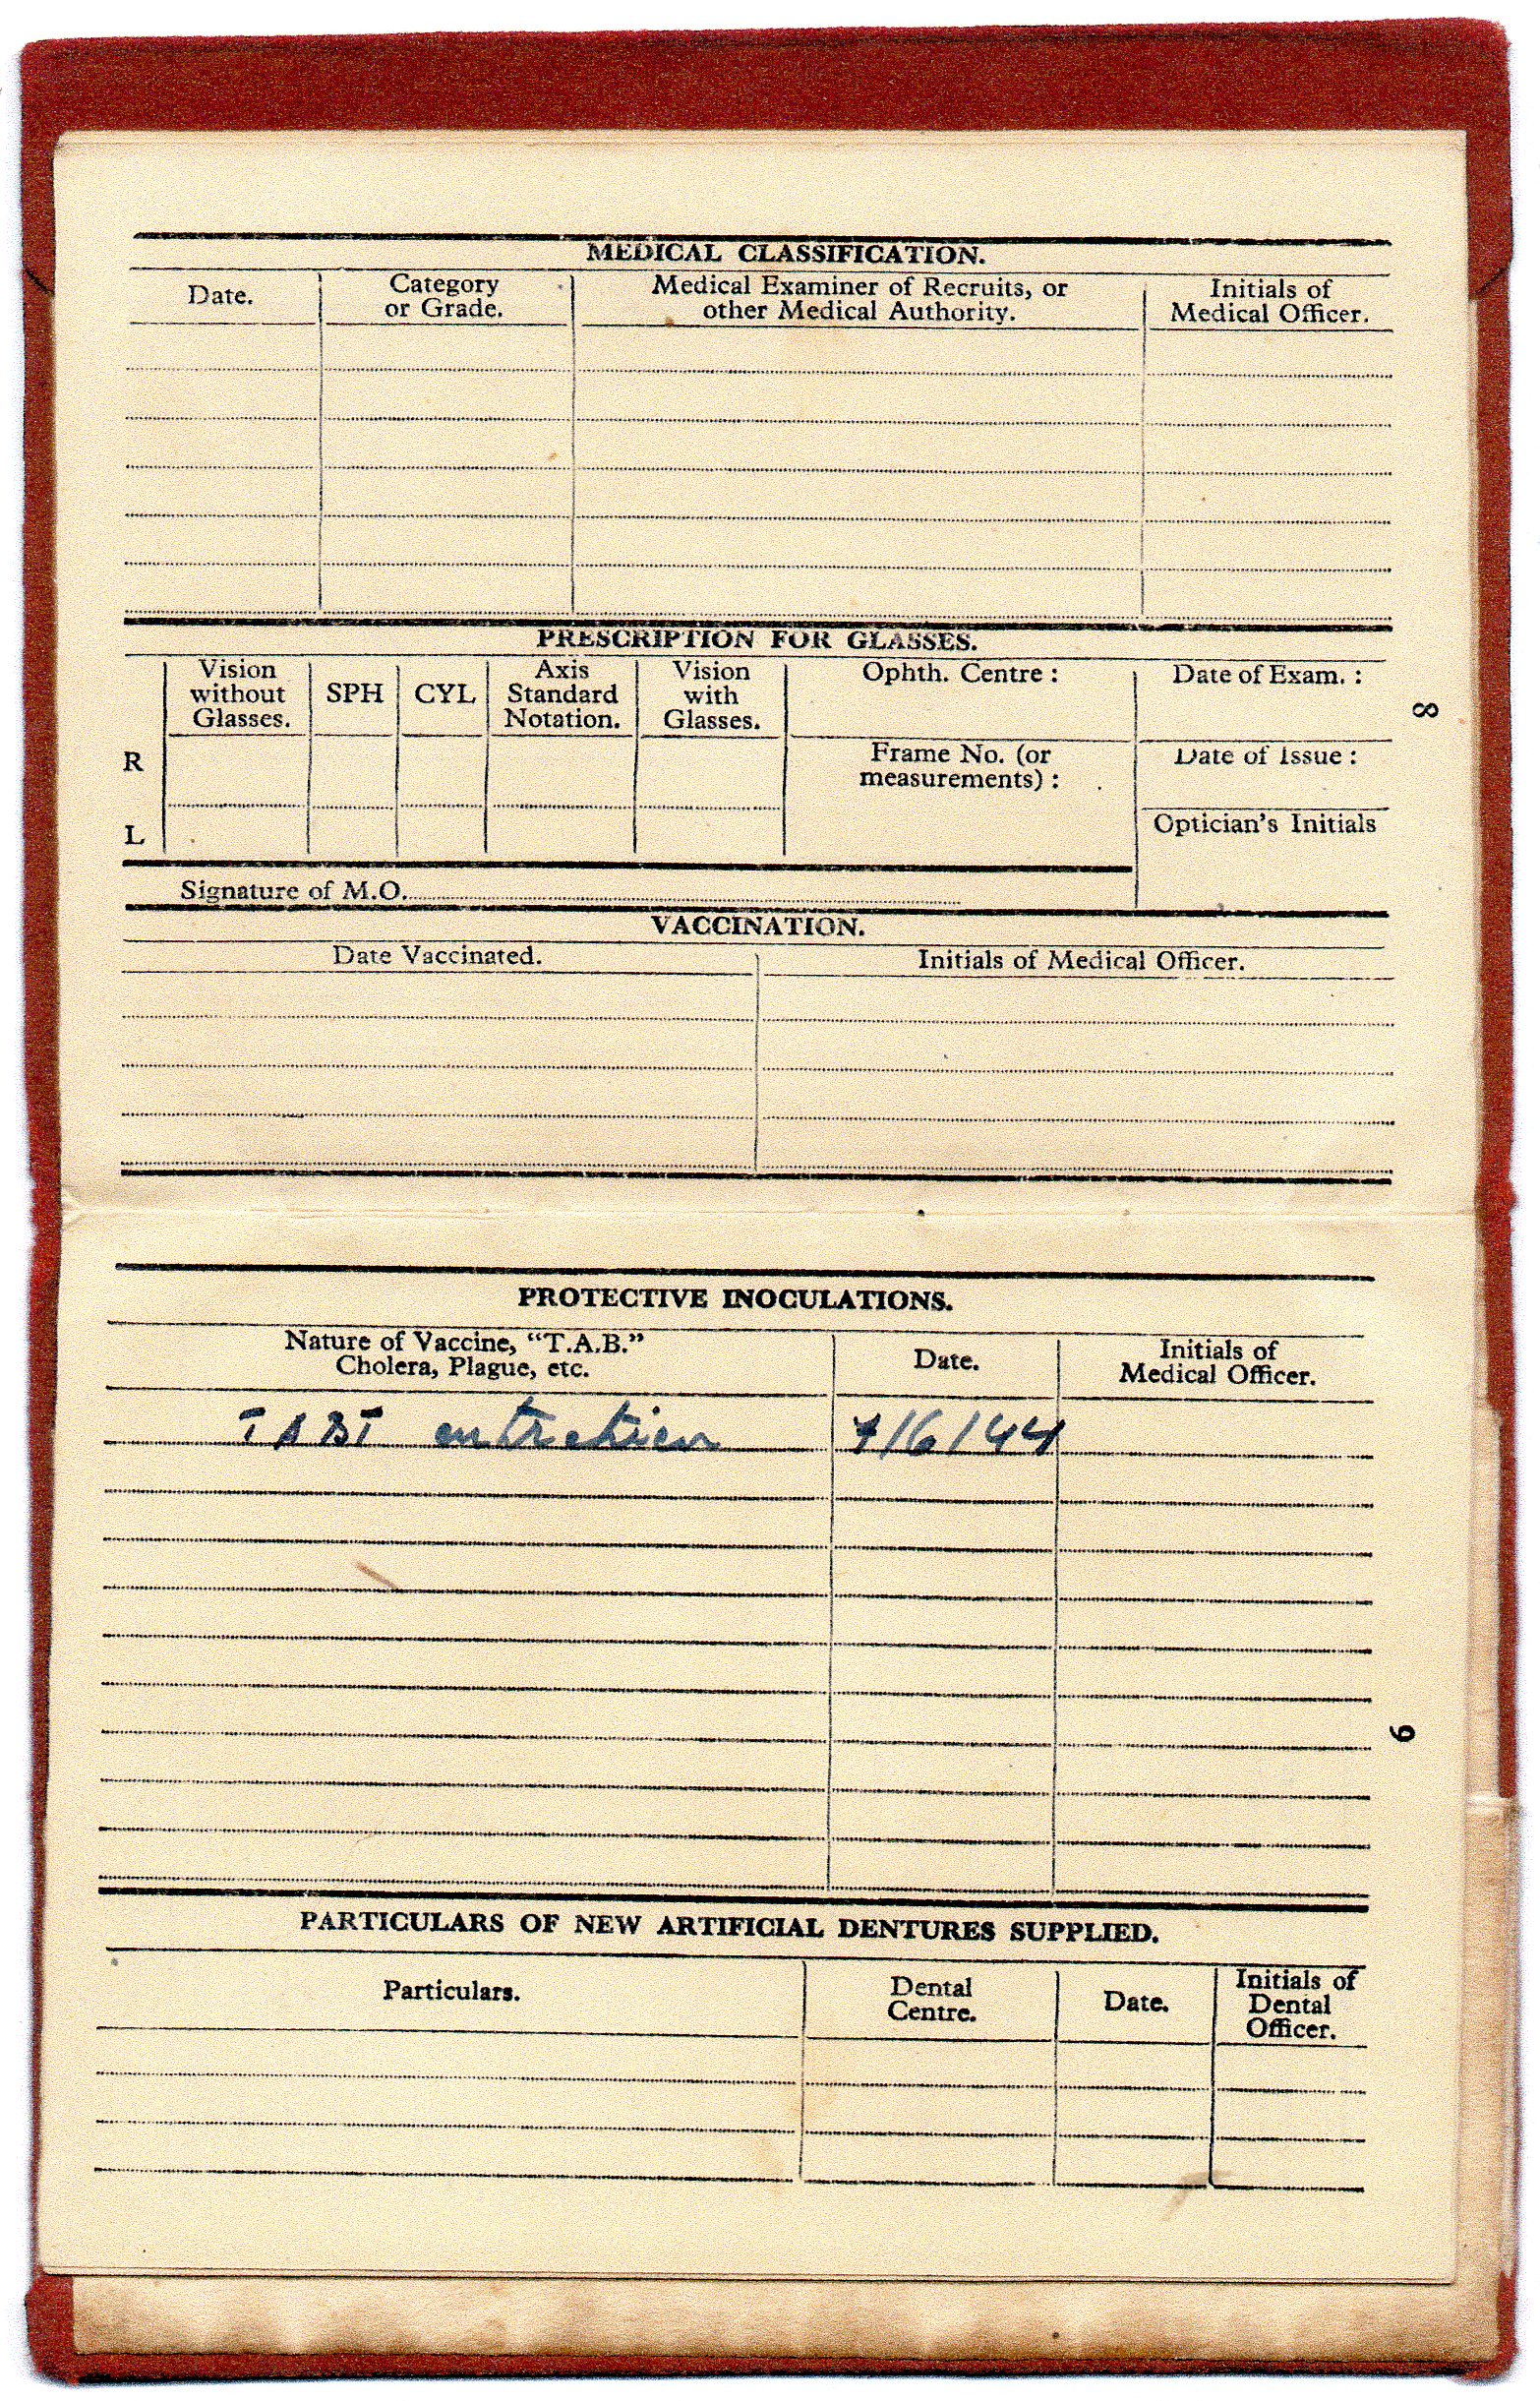 MEDICAL CLASSIFICATION.
Date. Category or Grade. Medical Examiner of Recruits, or other Medical Authority. Initials of Medical Officer.
PRESCRIPTION FOR GLASSES.
Vision without Glasses. SPH CYL Axis Standard Notation. Vision with Glasses. Ophth. Centre : Date of Exam. :
R Frame No. (or measurements) : Date of Issue :
L Optician's Initials
Signature of M.O.
VACCINATION.
Date Vaccinated. Initials of Medical Officer.
8
PROTECTIVE INOCULATIONS.
Nature of Vaccine, "T.A.B." Cholera, Plague, etc. Date. Initials of Medical Officer.
TABT entretien 7/6/44
9
PARTICULARS OF NEW ARTIFICIAL DENTURES SUPPLIED.
Particulars. Dental Centre. Date. Initials of Dental Officer.